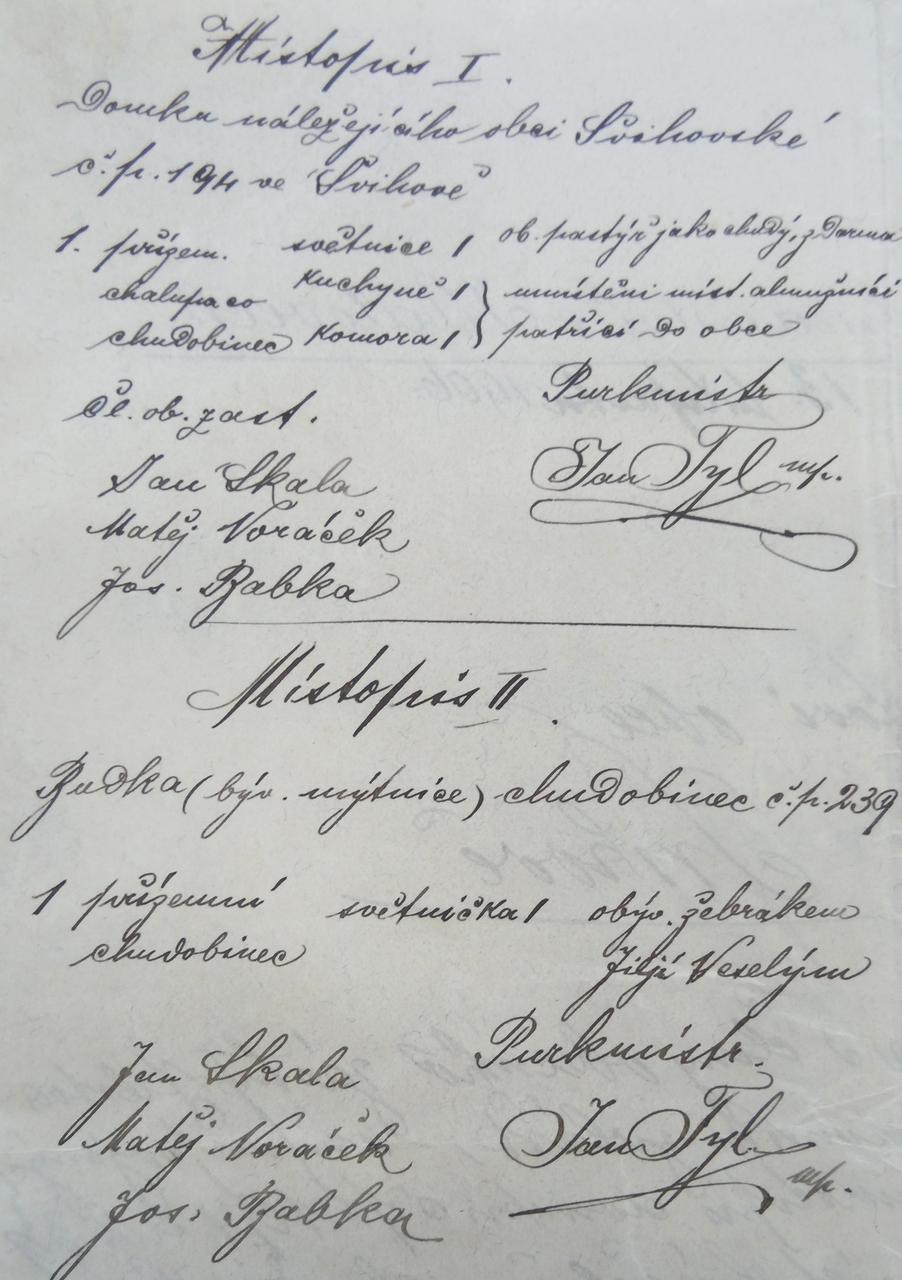 Místopis I.
Domku náležejícího obci Švihovské
č.p. 194 ve Švihově
1. přízem. světnice 1 ob. pastýř jako chudý, z darma
chalupa co kuchyně 1 } umístěni míst. almužníci
chudobinec komora 1 patřící do obce
Čl. ob. zast. Purkmistr
Jan Skala Jan Tyl mp.
Matěj Voráček
Jos. Babka
Místopis II.
Budka (býv. mýtnice) chudobinec č.p. 239
1 přízemní světnička 1 obýv. žebrákem
chudobinec Jiljí Veselým
Jan Skala Purkmistr.
Matěj Voráček Jan Tyl mp.
Jos. Babka